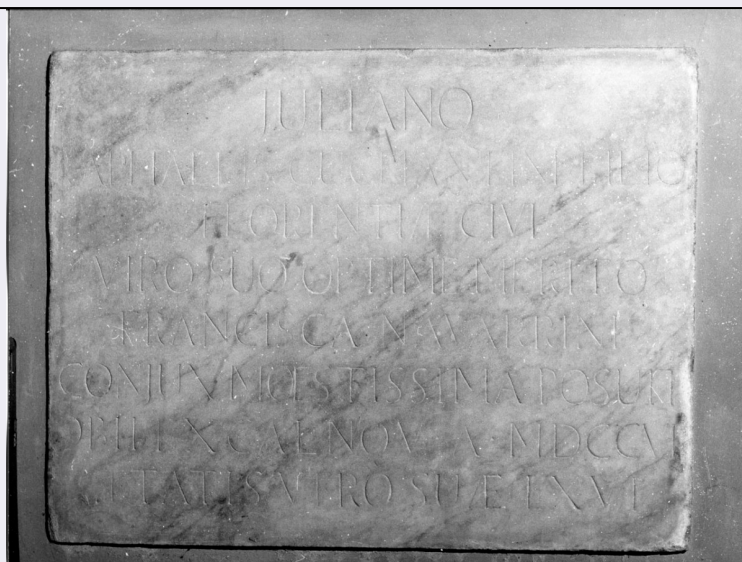 JULIANO
FILIO
FLORENTIAE CIVI
VIRO SUO OPTIME MERITO
FRANCISCA NAVARRINI
CONJUX MOESTISSIMA POSUIT
OBIIT X CAL NOV A MDCCVI
AETATIS VERO SUAE LXVI